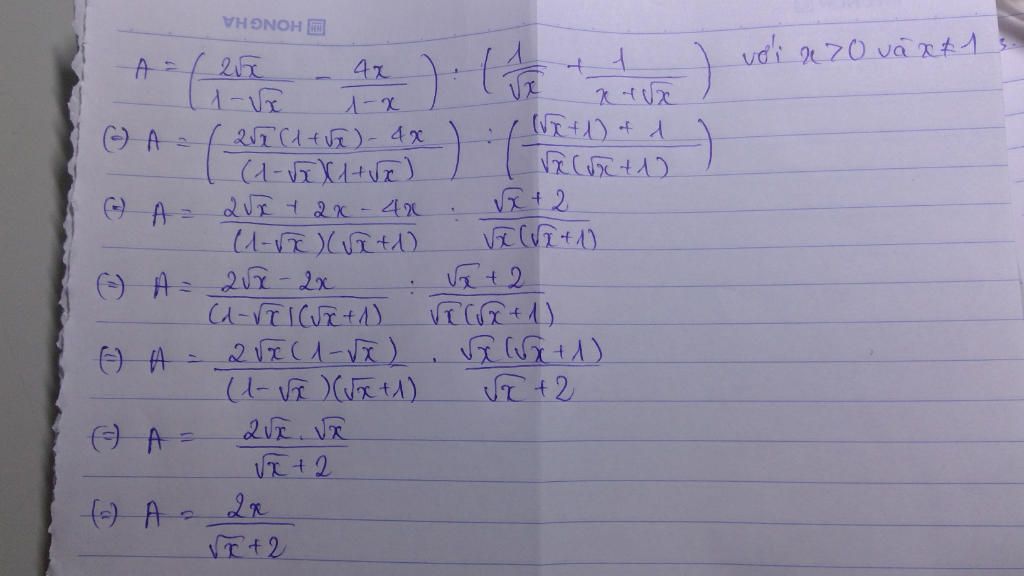 HONG HA
A = (2√x/(1-√x) - 4x/(1-x)) : (1/√x + 1/(x+√x)) với x>0 và x≠1
(=) A = ((2√x(1+√x)-4x)/((1-√x)(1+√x))) : (((√x+1)+1)/(√x(√x+1)))
(=) A = (2√x+2x-4x)/((1-√x)(√x+1)) : (√x+2)/(√x(√x+1))
(=) A = (2√x-2x)/((1-√x)(√x+1)) : (√x+2)/(√x(√x+1))
(=) A = (2√x(1-√x))/((1-√x)(√x+1)) . (√x(√x+1))/(√x+2)
(=) A = (2√x.√x)/(√x+2)
(=) A = 2x/(√x+2)